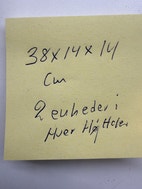 38x14x14
cm
2 enheder i
Hver Højttaler